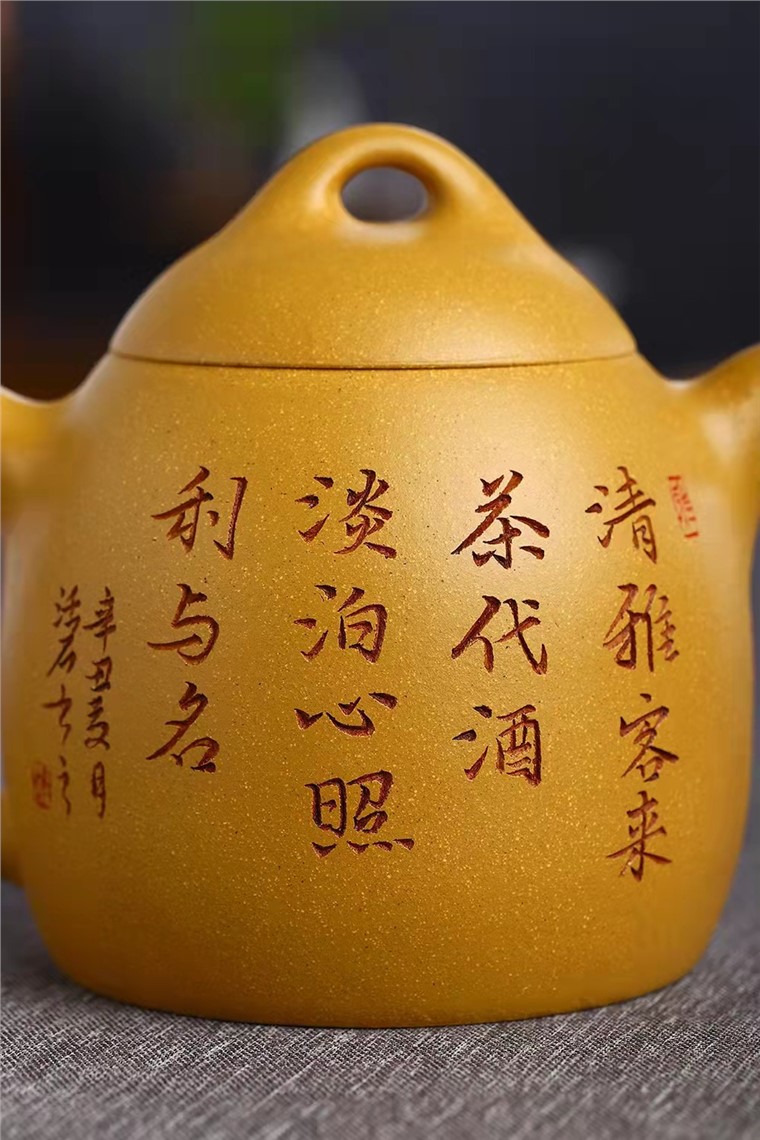 清雅客来
茶代酒
淡泊心照
利与名
辛丑夏月